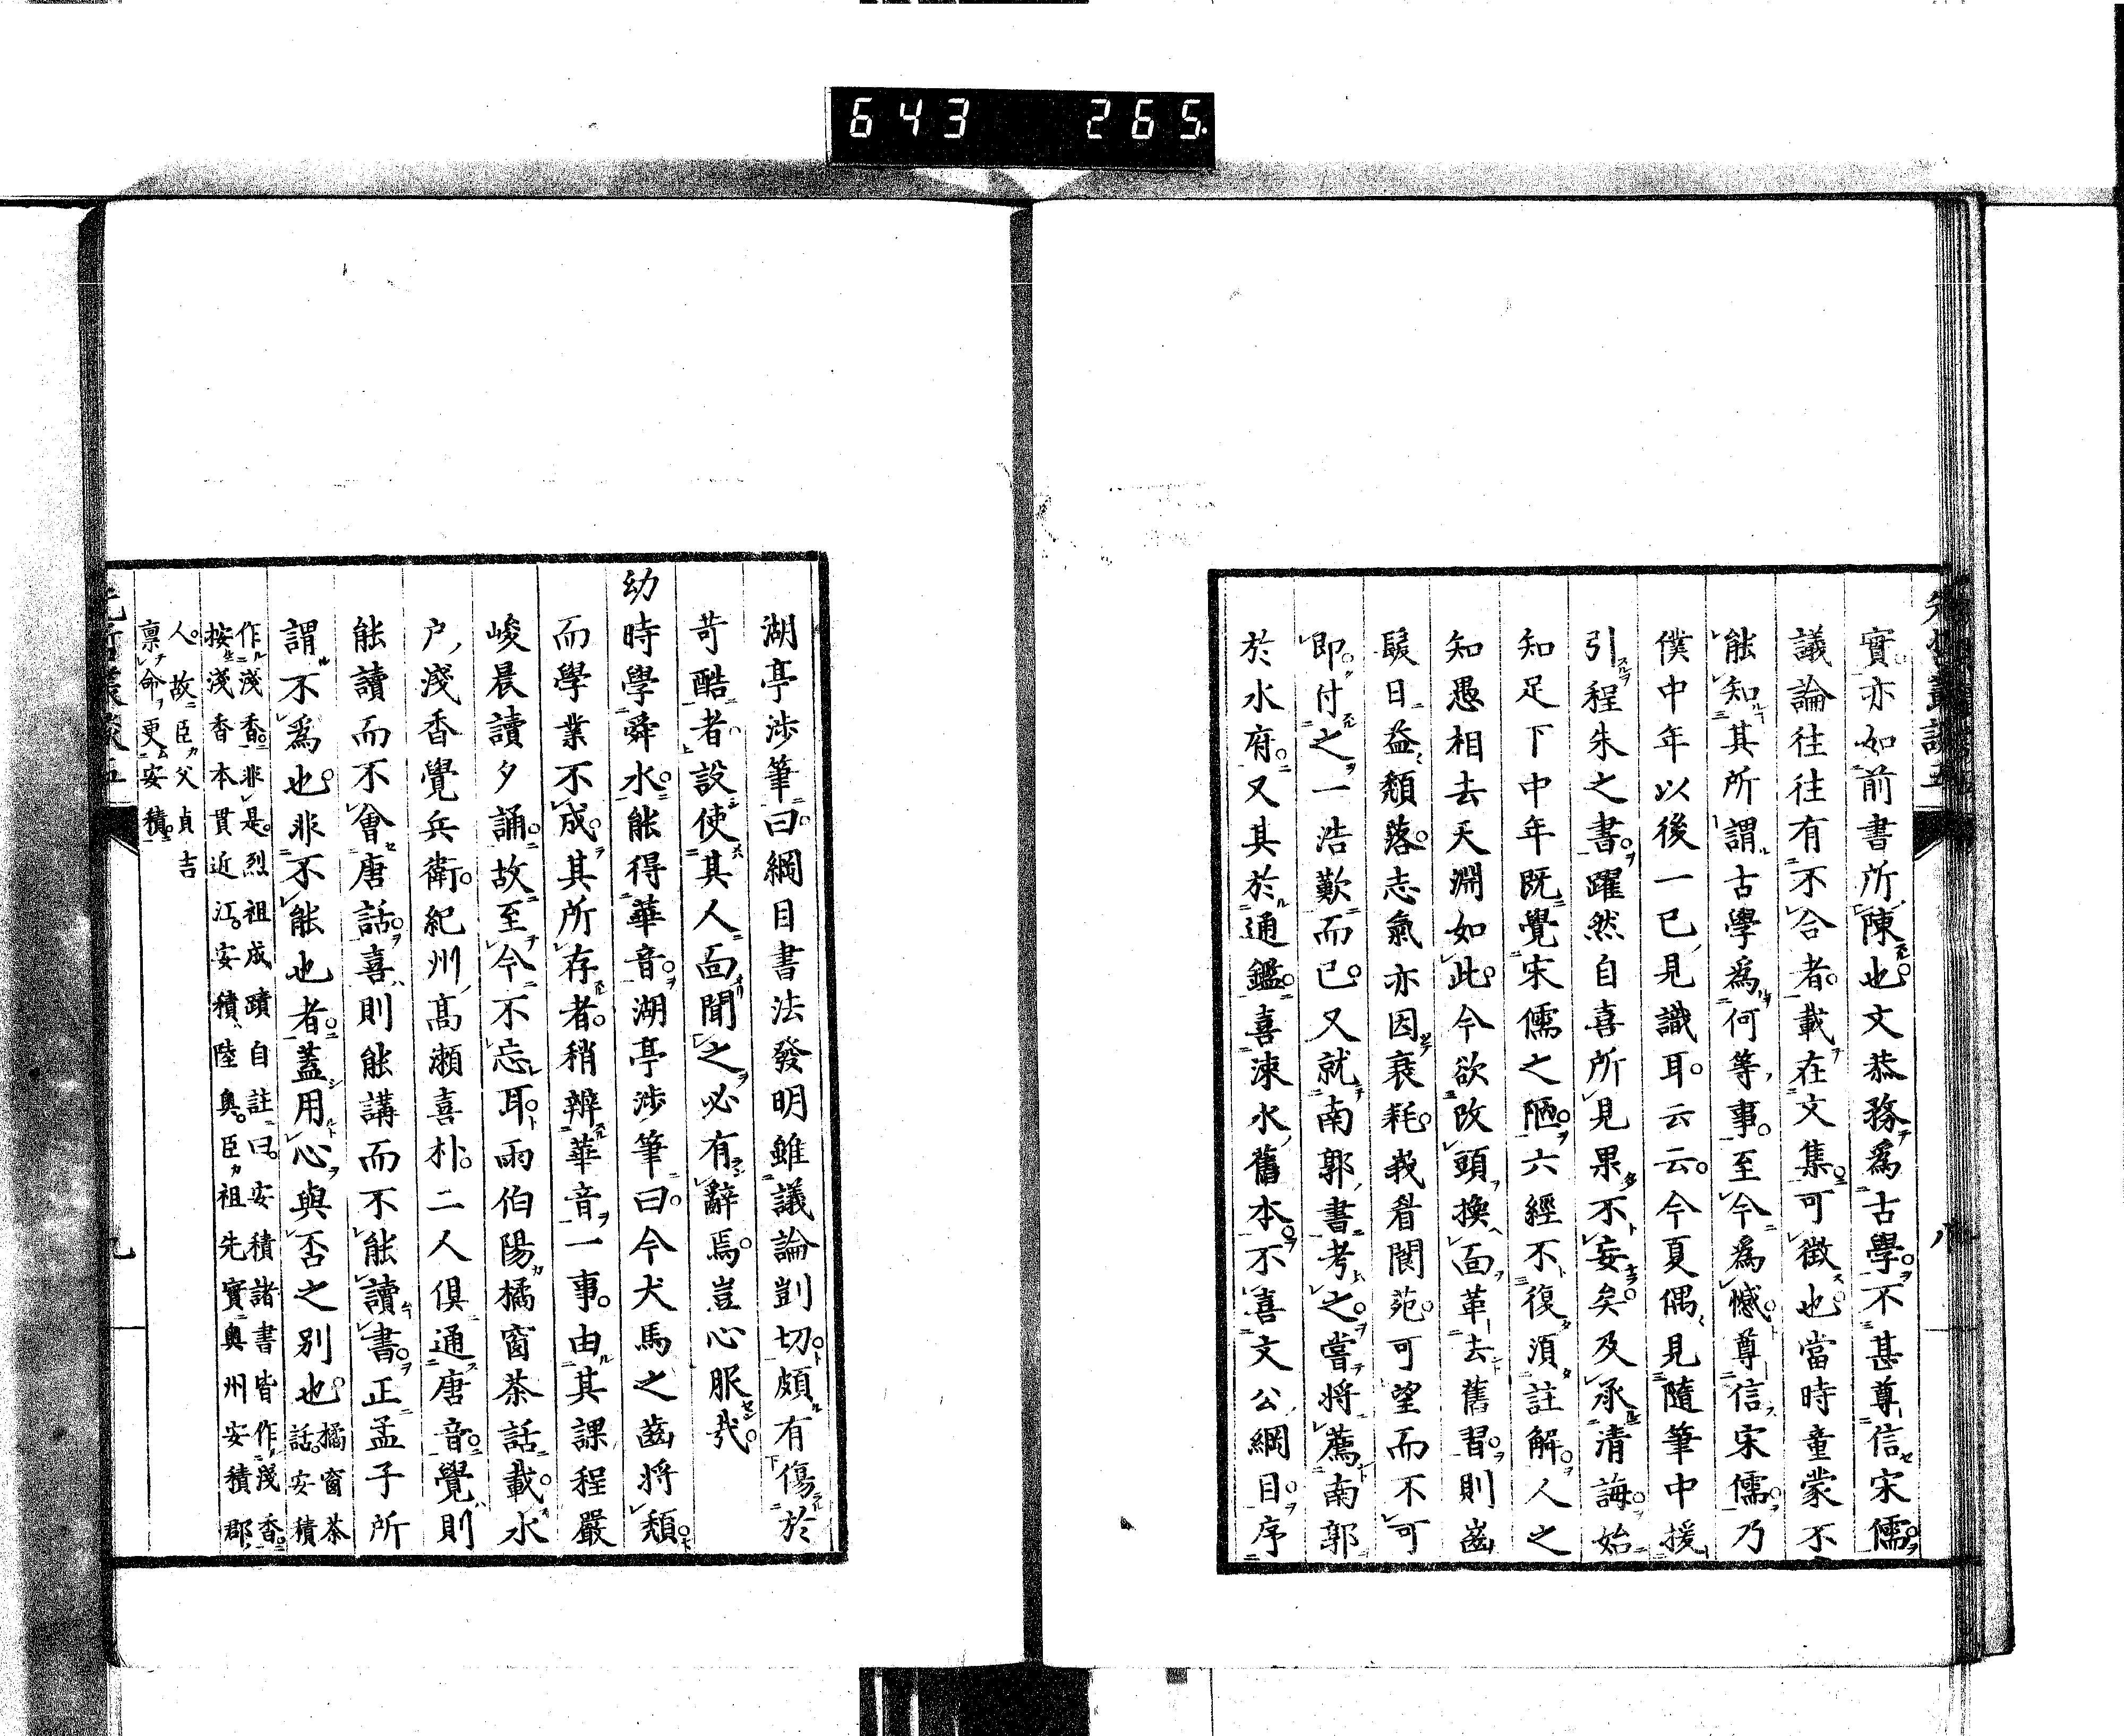 643 265
實亦如前書所陳也文恭務爲古學不甚尊信宋儒
議論往往有不合者載在文集可徵也當時童蒙不
能知其所謂古學爲何等事至今爲憾尊信宋儒乃
僕中年以後一已見識耳云云今夏偶見隨筆中援
引程朱之書躍然自喜所見果不妄矣及承清誨始
知足下中年既覺宋儒之陋六經不復須註解人之
知愚相去天淵如此今欲改頭換面革去舊習則齒
髮日益頹落志氣亦因衰耗我看閬苑可望而不可
即付之一浩歎而已又就南郭書考之嘗將薦南郭
於水府又其於通鑑喜涑水舊本不喜文公綱目序
八
湖亭渉筆曰綱目書法發明雖議論剴切頗有傷於
苛酷者設使其人面聞之必有辭焉豈心服哉
幼時學舜水能得華音湖亭渉筆曰今犬馬之齒將頹
而學業不成其所存者稍辨華音一事由其課程嚴
峻晨讀夕誦故至今不忘耳雨伯陽橘窗茶話載水
戶淺香覺兵衛紀州高瀬喜朴二人俱通唐音覺則
能讀而不會唐話喜則能講而不能讀書正孟子所
謂不爲也非不能也者蓋用心與否之別也橘窗茶
話安積
作淺香非是烈祖成蹟自註曰安積諸書皆作淺香
按淺香本貫近江安積陸奥臣祖先實奥州安積郡
人故臣父貞吉
稟命更安積